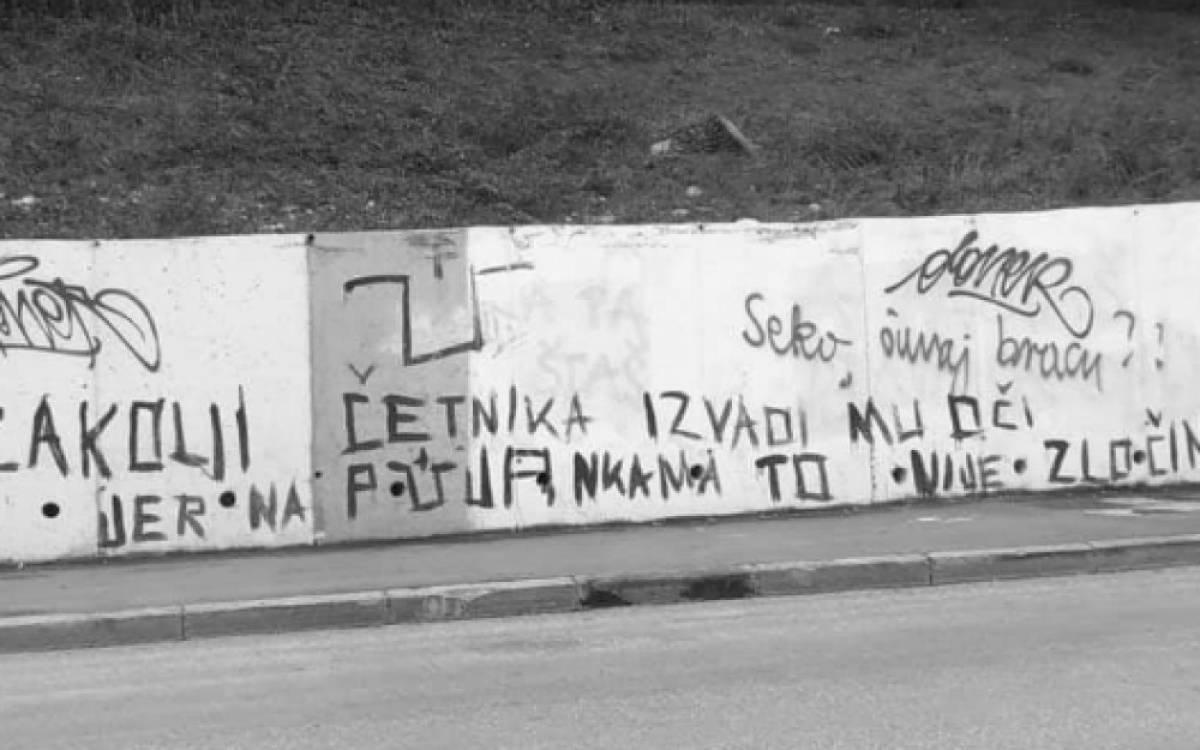 doner
Seko, čuvaj bracu?!
ZAKOLJI ČETNIKA IZVADI MU OČI
JER NA PUTUR NKAMA TO NIJE ZLOČIN